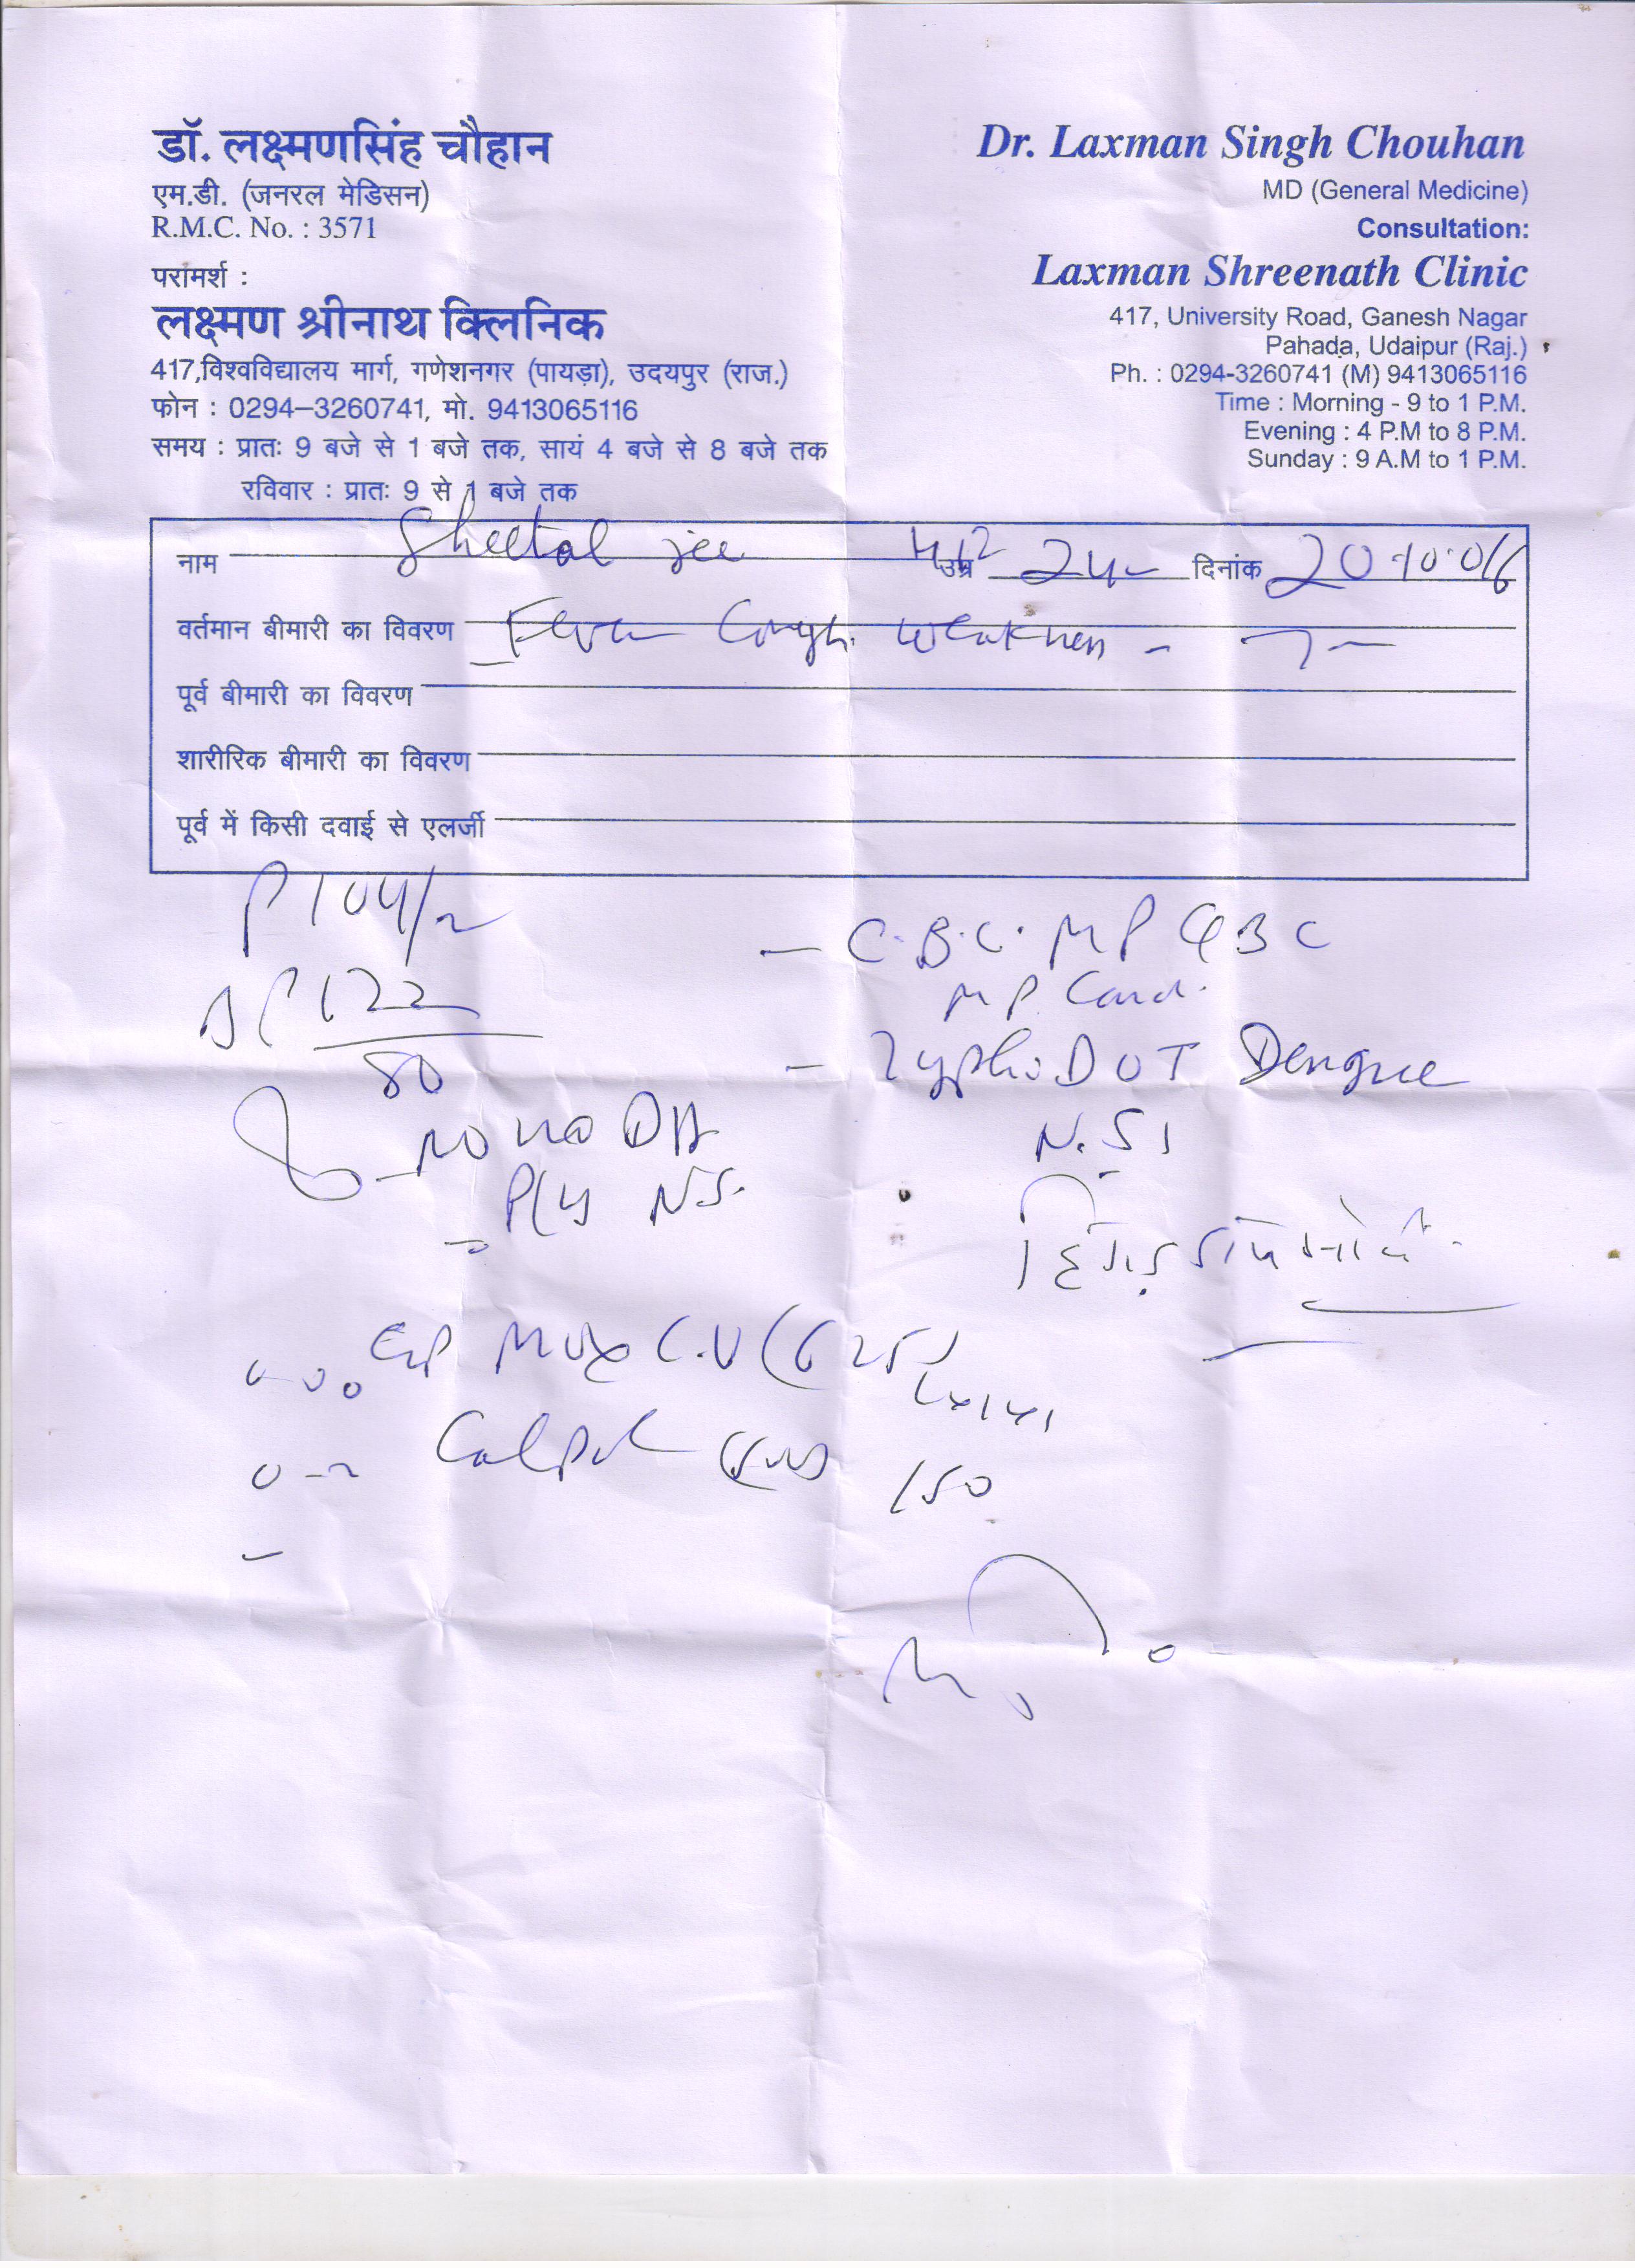 डॉ. लक्ष्मणसिंह चौहान
एम.डी. (जनरल मेडिसन)
R.M.C. No. : 3571
परामर्श :
लक्ष्मण श्रीनाथ क्लिनिक
417,विश्वविद्यालय मार्ग, गणेशनगर (पायड़ा), उदयपुर (राज.)
फोन : 0294–3260741, मो. 9413065116
समय : प्रातः 9 बजे से 1 बजे तक, सायं 4 बजे से 8 बजे तक
रविवार : प्रातः 9 से 1 बजे तक
Dr. Laxman Singh Chouhan
MD (General Medicine)
Consultation:
Laxman Shreenath Clinic
417, University Road, Ganesh Nagar
Pahada, Udaipur (Raj.)
Ph. : 0294-3260741 (M) 9413065116
Time : Morning - 9 to 1 P.M.
Evening : 4 P.M to 8 P.M.
Sunday : 9 A.M to 1 P.M.
नाम Sheetal jee उम्र 24 दिनांक 20.10.016
वर्तमान बीमारी का विवरण Fever Cough weakness
पूर्व बीमारी का विवरण
शारीरिक बीमारी का विवरण
पूर्व में किसी दवाई से एलर्जी
P 104/
BP 122
80
C.B.C. MP QBC
MP Card.
Typhi DOT Dengue
N.S1
N.S.
C.V (625)
1x1x1
Calpol (500) 150